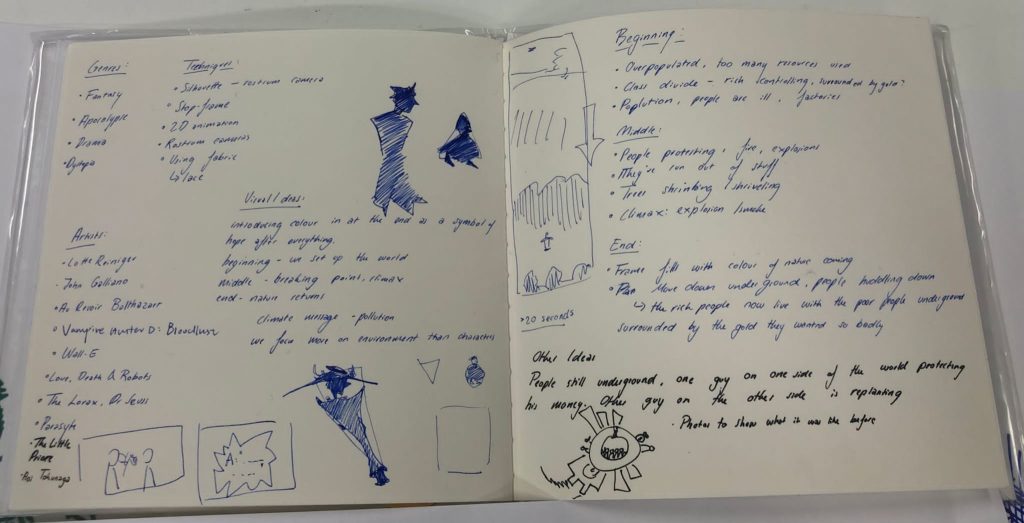 Genres:
• Fantasy
• Apocalypse
• Drama
• Dytopa
Techniques:
• Silhouette - rostrum camera
• Stop-frame
• 2D animation
• Rostrum cameras
• Using fabric
↳ lace
Visual Ideas:
introducing colour in at the end as a symbol of
hope after everything.
beginning - we set up the world
middle - breaking point, climax
end - nature returns
climate message - pollution
we focus more on environment than characters
Artists:
• Lotte Reiniger
• John Galliano
• Au Revoir Balthazar
• Vampire Hunter D: Bloodlust
• Wall-E
• Love, Death & Robots
• The Lorax, Dr Seuss
• Parasyte
• The Little
Prince
• Rei Tokunaga
>20 seconds
Beginning:
• Overpopulated, too many resources used
• Class divide - rich controlling, surrounded by gold?
• Poplution, people are ill, factories
Middle:
• People protesting, fire, explosions
• They've run out of stuff
• Trees shrinking / shriveling
• Climax: explosion / smoke
End:
• Frame fill with colour of nature coming
• Pan move down underground, people huddling down
↳ the rich people now live with the poor people underground
surrounded by the gold they wanted so badly
Other Ideas
People still underground, one guy on one side of the world protecting
his money. Other guy on the other side is replanting
• Photos to show what it was like before